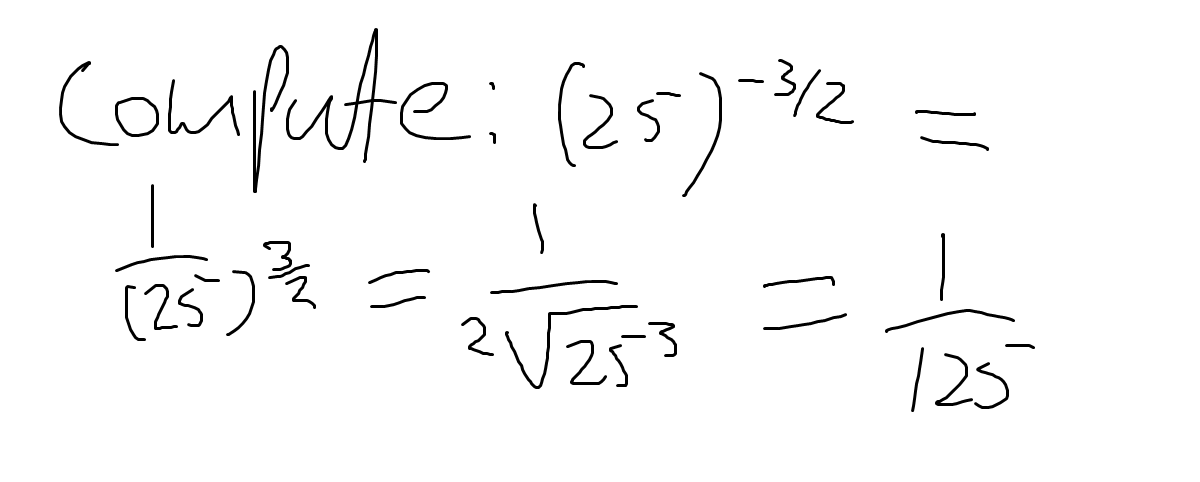 Compute: (25)^{-3/2} =
\frac{1}{(25)^{\frac{3}{2}}} = \frac{1}{\sqrt[2]{25^3}} = \frac{1}{125}